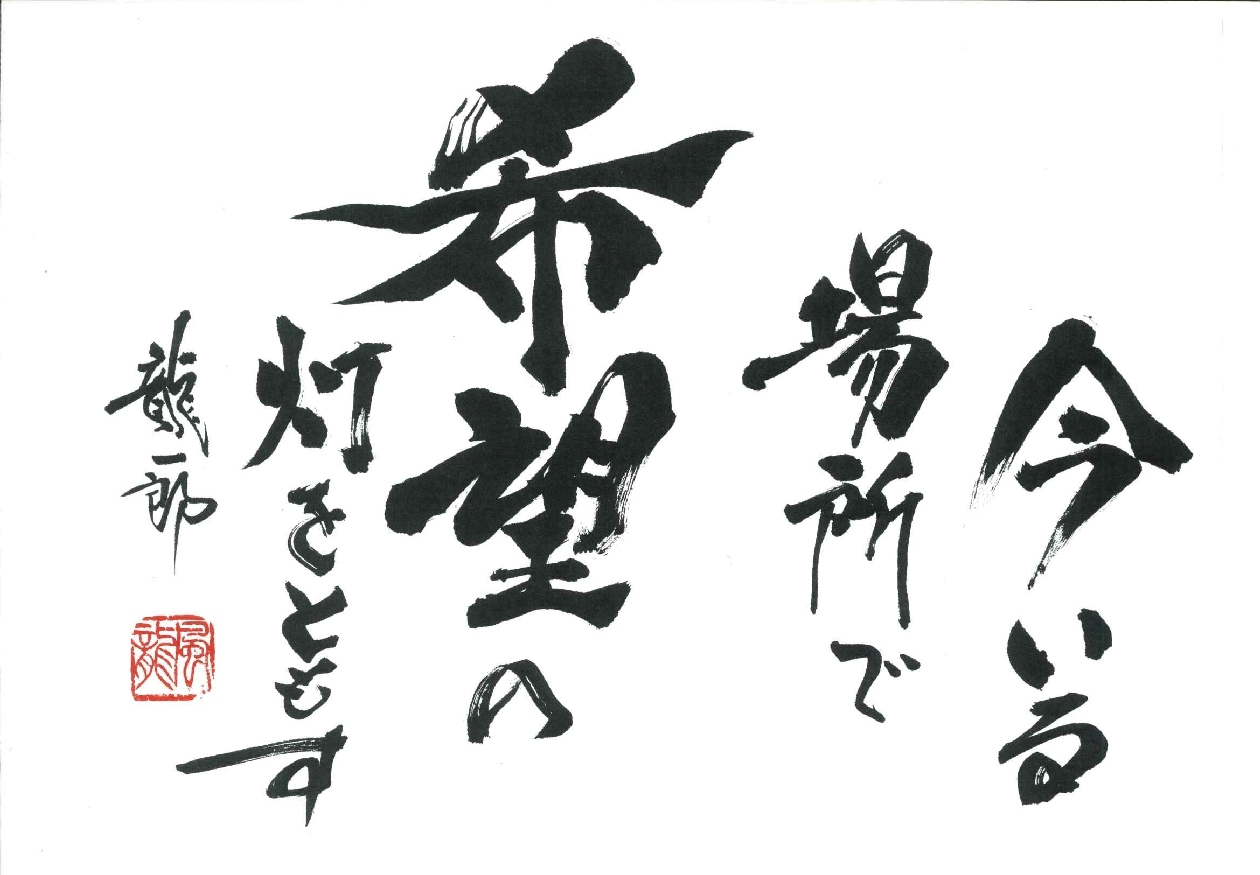 今いる
場所で
希望の
灯をともす
龍一郎
風龍